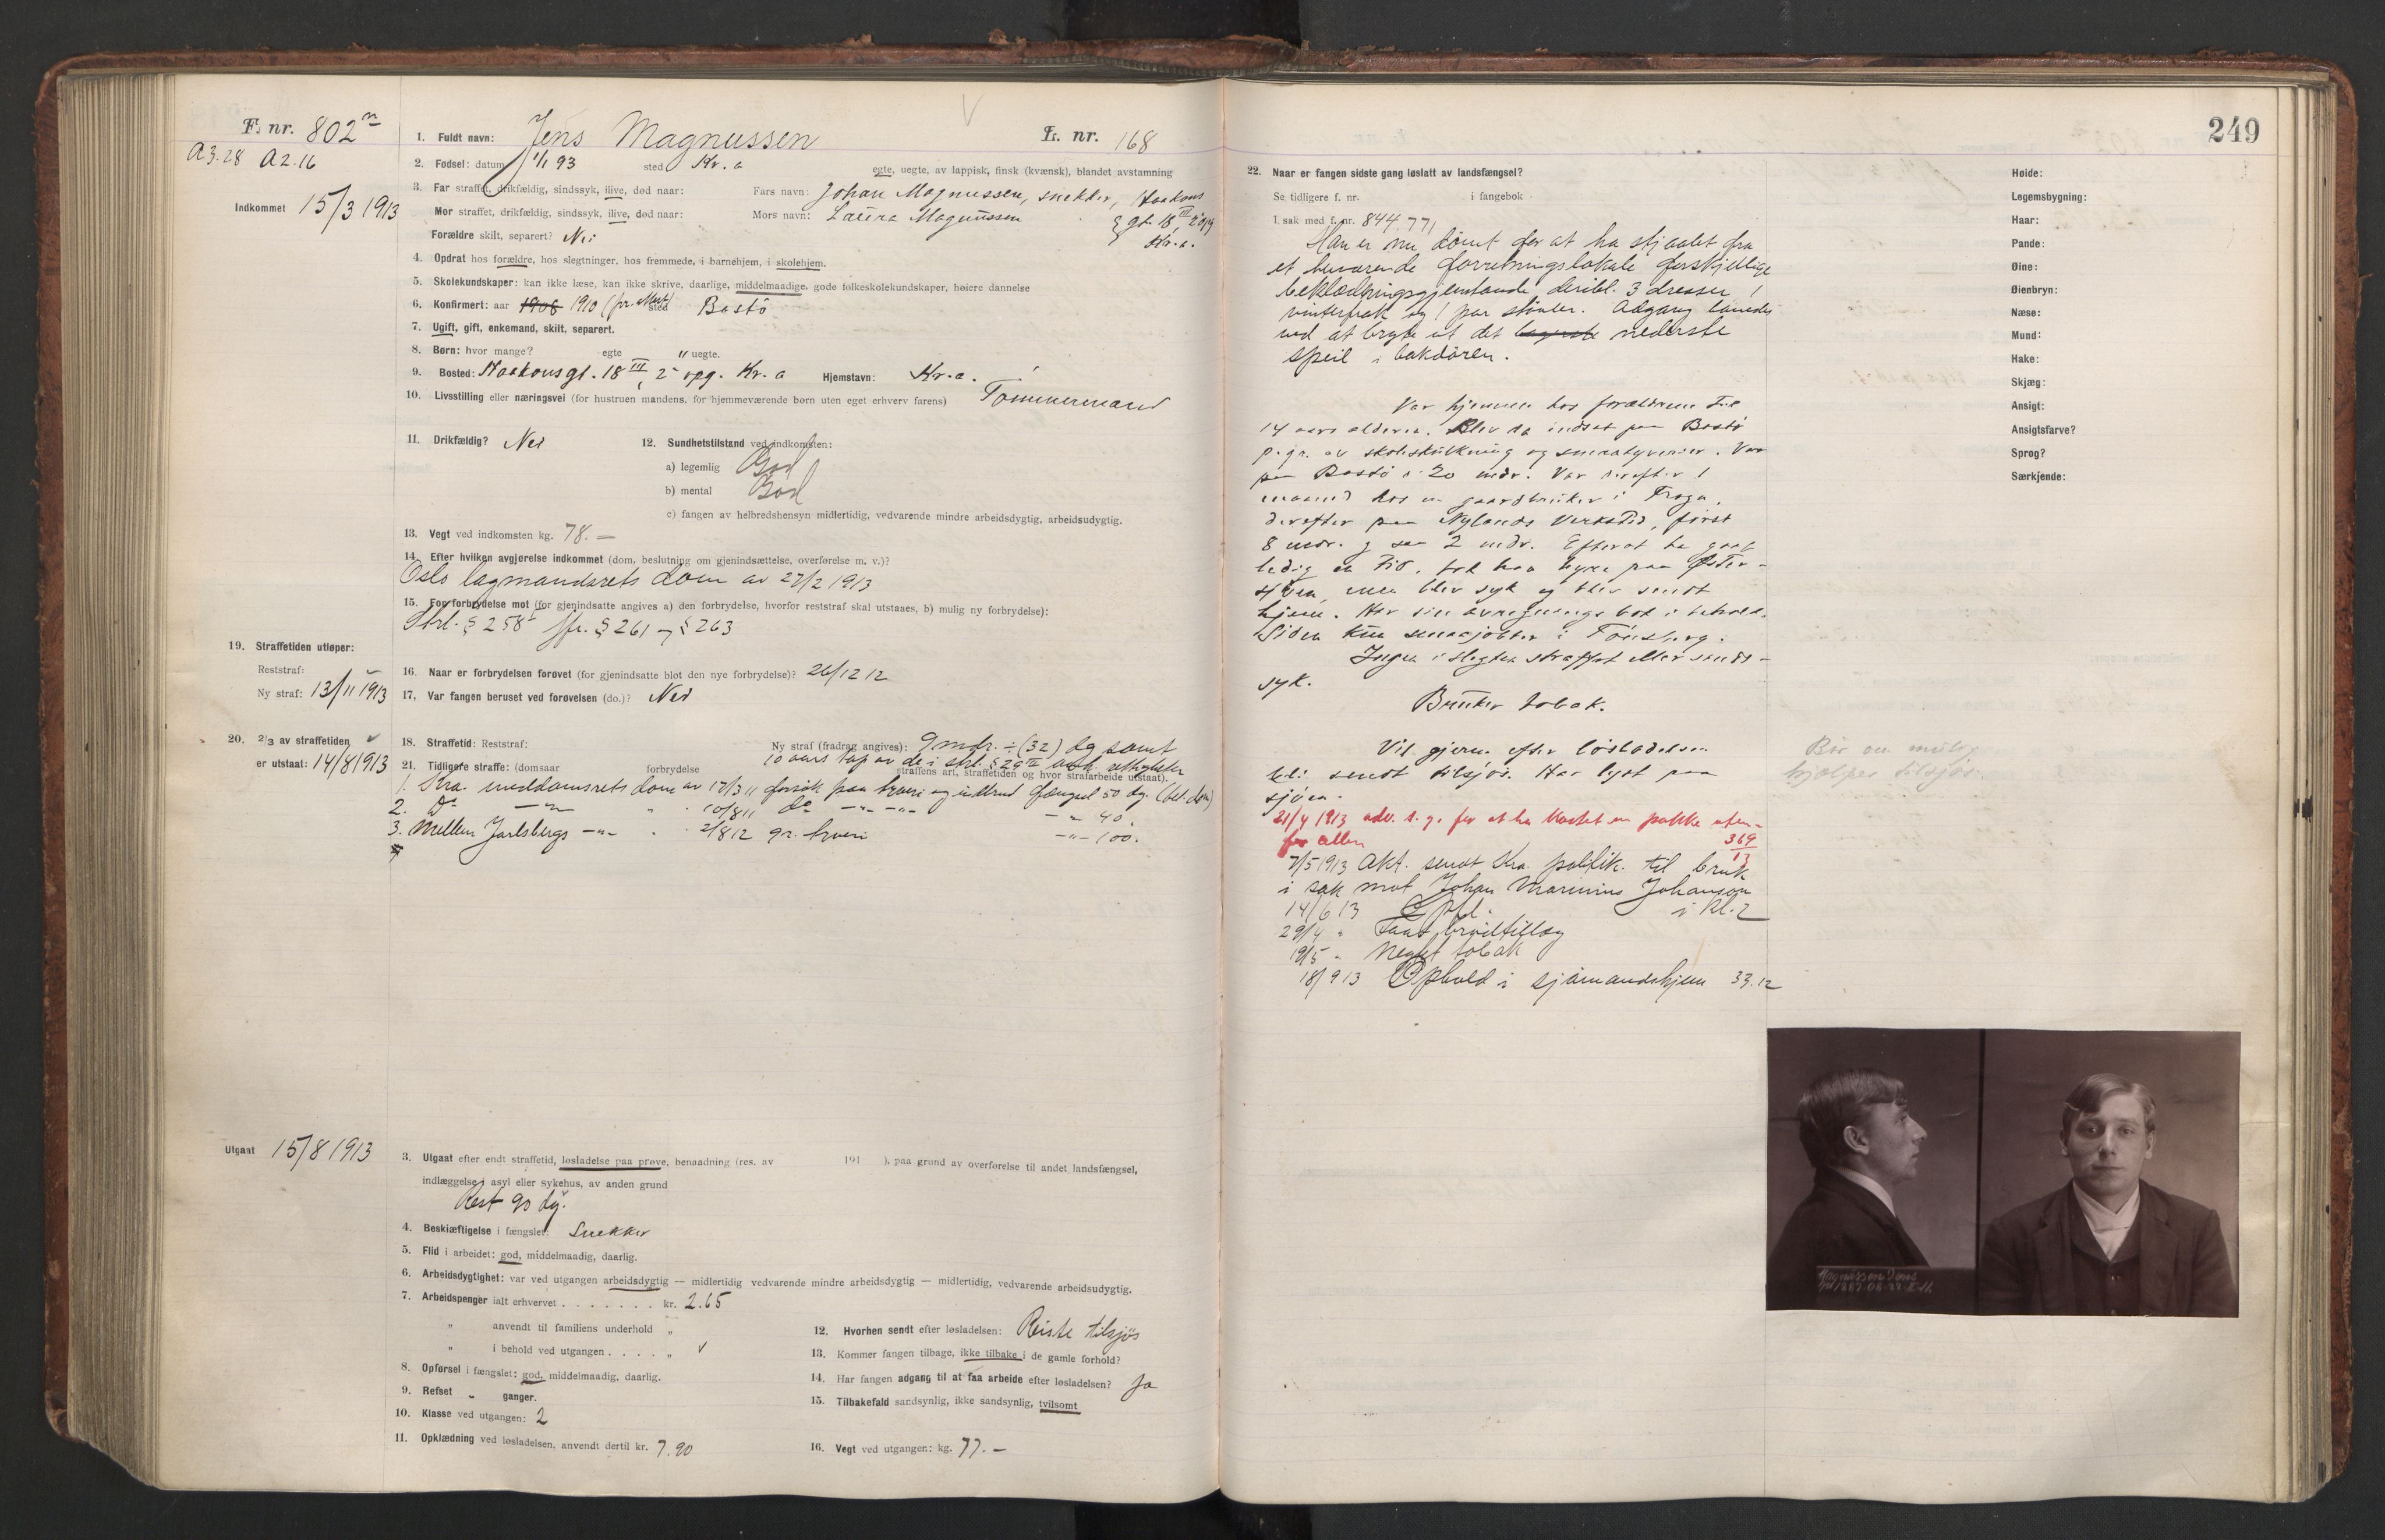 F. nr. 802
A3.28 A2.16
Indkommet 15/3 1913
L. nr. 168
1. Fuldt navn: Jens Magnussen
2. Fødsel: datum 1/1 93 sted Kr.a
egte, uegte, av lappisk, finsk (kvænsk), blandet avstamning
3. Far straffet, drikfældig, sindssyk, ilive, død naar: Fars navn: Johan Magnussen, snekker, Haakons
Mor straffet, drikfældig, sindssyk, ilive, død naar: Mors navn: Laura Magnussen gt. 18 III
Kr.a.
Forældre skilt, separert? Nei
4. Opdrat hos forældre, hos slegtninger, hos fremmede, i barnehjem, i skolehjem.
5. Skolekundskaper: kan ikke læse, kan ikke skrive, daarlige, middelmaadige, gode folkeskolekundskaper, høiere dannelse
6. Konfirmert: aar 1908 1910 sted Bastö
7. Ugift, gift, enkemand, skilt, separert.
8. Børn: hvor mange? egte " uegte.
9. Bosted: Haakonsgt. 18 III, 2 opg. Kr.a Hjemstavn: Kr.a.
10. Livsstilling eller næringsvei (for hustruen mandens, for hjemmeværende børn uten eget erhverv farens) Tømmermand
11. Drikfældig? Nei
12. Sundhetstilstand ved indkomsten:
a) legemlig God
b) mental God
c) fangen av helbredshensyn midlertidig, vedvarende mindre arbeidsdygtig, arbeidsudygtig.
13. Vegt ved indkomsten kg. 78.—
14. Efter hvilken avgjørelse indkommet (dom, beslutning om gjenindsættelse, overførelse m. v.)?
Oslo lagmandsrets dom av 27/2 1913
15. For forbrydelse mot (for gjenindsatte angives a) den forbrydelse, hvorfor reststraf skal utstaaes, b) mulig ny forbrydelse):
Strl. § 258 jfr. § 261 og § 263
19. Straffetiden utløper:
Reststraf: —
Ny straf: 13/11 1913
16. Naar er forbrydelsen forøvet (for gjenindsatte blot den nye forbrydelse)? 26/12 12
17. Var fangen beruset ved forøvelsen (do.)? Nei
20. 2/3 av straffetiden
er utstaat: 14/8 1913
18. Straffetid: Reststraf: Ny straf (fradrag angives): 9 mdr. ÷ (32) dg samt
10 aars tap av de i strl. § 29 III omh. rettigheter
21. Tidligere straffe: (domsaar forbrydelse straffens art, straffetiden og hvor strafarbeide utstaat).
1. Kra. meddomsrets dom av 17/3 11 forsök paa tyveri og indbrud fængsel 50 dg. (bet. dom)
2. Do —"— " 10/8 11 do —"— —"— —"— 40.
3. Mellem Jarlsbergs —"— " 2/8 12 gr. tyveri —"— 100.
Utgaat 15/8 1913
3. Utgaat efter endt straffetid, løsladelse paa prøve, benaadning (res. av 191 ), paa grund av overførelse til andet landsfængsel,
indlæggelse i asyl eller sykehus, av anden grund
Rest 90 dg.
4. Beskjæftigelse i fængslet: Snekker
5. Flid i arbeidet: god, middelmaadig, daarlig.
6. Arbeidsdygtighet: var ved utgangen arbeidsdygtig — midlertidig vedvarende mindre arbeidsdygtig — midlertidig, vedvarende arbeidsudygtig.
7. Arbeidspenger ialt erhvervet . . . . . . . kr. 2.65
" anvendt til familiens underhold "
" i behold ved utgangen . . . . "
8. Opførsel i fængslet: god, middelmaadig, daarlig.
9. Refset " ganger.
10. Klasse ved utgangen: 2
11. Opklædning ved løsladelsen, anvendt dertil kr. 7.90
12. Hvorhen sendt efter løsladelsen: Reiste tilsjøs
13. Kommer fangen tilbage, ikke tilbake i de gamle forhold?
14. Har fangen adgang til at faa arbeide efter løsladelsen? Ja
15. Tilbakefald sandsynlig, ikke sandsynlig, tvilsomt
16. Vegt ved utgangen: kg. 77.—
249
22. Naar er fangen sidste gang løslatt av landsfængsel?
Se tidligere f. nr. i fangebok
I sak med f. nr. 844, 771
Han er nu dömt for at ha stjaalet fra
et værende forretningslokale forskjellige
beklædningsgjenstande deribl. 3 dresser, 1
vinterfrak og 1 par stövler. Adgang
ved at bryte ut det nederste
speil i bakdören.
Var hjemme hos forældrene til
14 aars alderen. Blev da indsat paa Bastö
p.gr. av skoleskulkning og smaatyverier. Var
paa Bastö i 20 mdr. Var derefter 1
maaned hos en gaardbruker i Trøgs.
derefter paa Nylands Verksted, först
8 mdr. og saa 2 mdr. Efterat ha gaat
ledig en tid, tok han hyre paa Öster-
, men blev syk og blev sendt
hjem. Har sin avregningsbok i behold.
Siden kun smaajobber i Tönsberg.
Ingen i slegten straffet eller sinds-
syk.
Bruker tobak.
Vil gjerne efter lösladelsen
bli sendt tilsjös. Har lyst paa
sjöen.
21/4 1913 adv. s. g. for at ha kastet en pakke uten-
for cellen 369/13
7/5 1913 Akt. sendt Kra. politik. til bruk
i sak mot Johan Marinius Johanson
14/6 13 i Kl. 2
29/4 " Faat brödtillæg
19/5 " Negtet tobak
18/9 13 Ophold i sjömandshjem 33.12
Bör om mulig
hjælpes tilsjøs.
Høide:
Legemsbygning:
Haar:
Pande:
Øine:
Øienbryn:
Næse:
Mund:
Hake:
Skjæg:
Ansigt:
Ansigtsfarve?
Sprog?
Særkjende:
Magnussen Jens